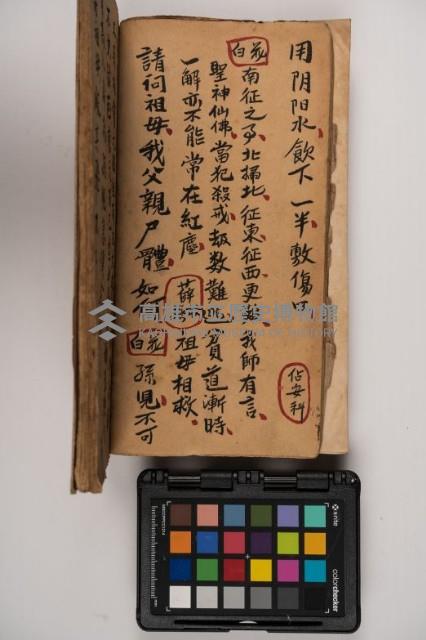 用阴阳水飲下一半敷傷
佔安科
花白
南征之子北掃北征東征西更
我師有言
聖神仙佛當犯殺戒劫数難
貧道漸時
一解亦不能常在紅塵
薛
祖母相救
請问祖母我父親尸體如
花白
孫兒不可
高雄市立歷史博物館
KAOHSIUNG MUSEUM OF HISTORY
x-rite
colorchecker